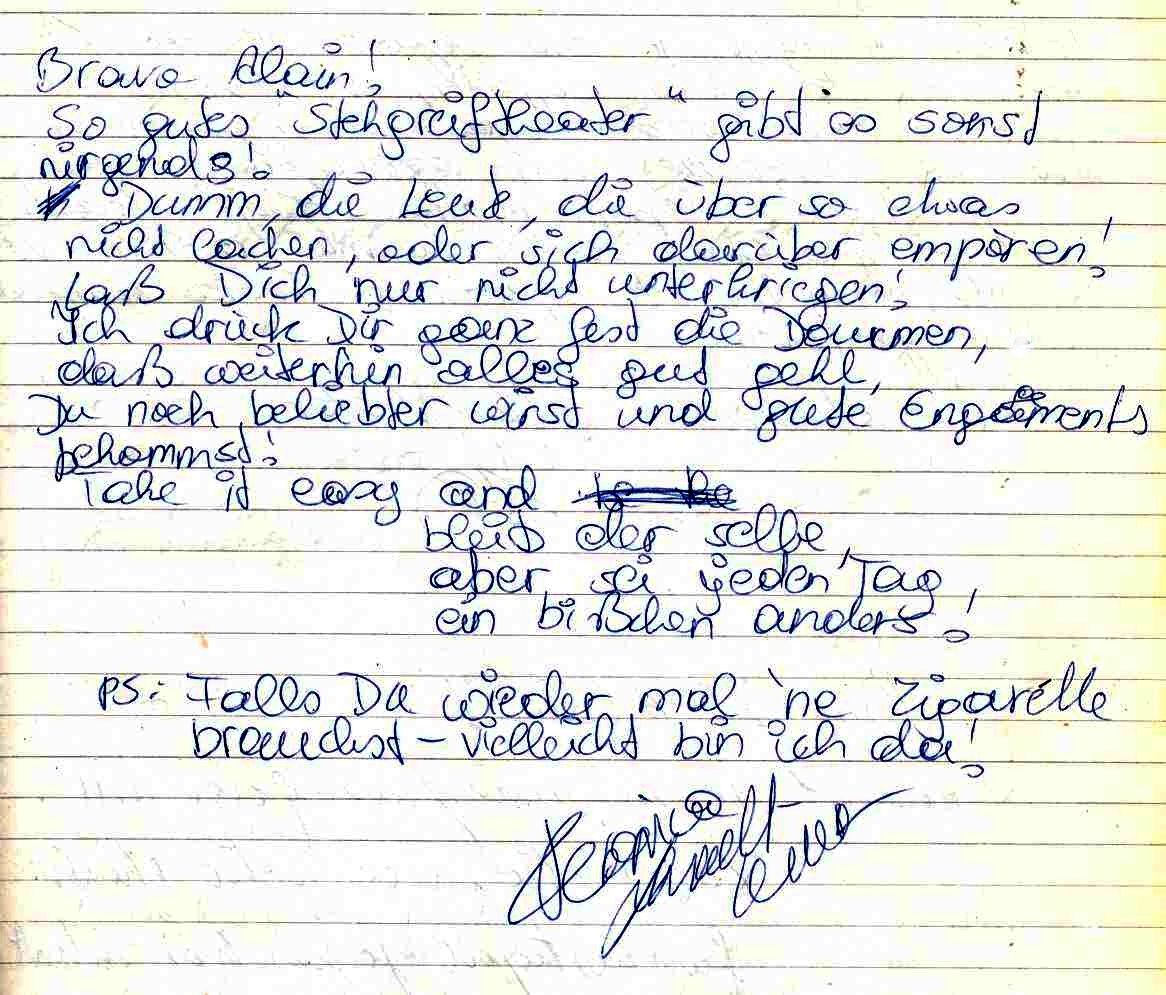 Bravo Alain!
So gutes "Stehgreiftheater" gibt es sonst
nirgends!
Dumm, die Leute, die über so etwas
nicht lachen, oder sich darüber empören!
Laß Dich nur nicht unterkriegen!
Ich drück Dir ganz fest die Daumen,
daß weiterhin alles gut geht,
Du noch beliebter wirst und gute Engagements
bekommst!
Take it easy and
bleib der selbe,
aber sei jeden Tag,
ein bißchen anders!
PS: Falls Du wieder mal 'ne Zigarette
brauchst – vielleicht bin ich da!